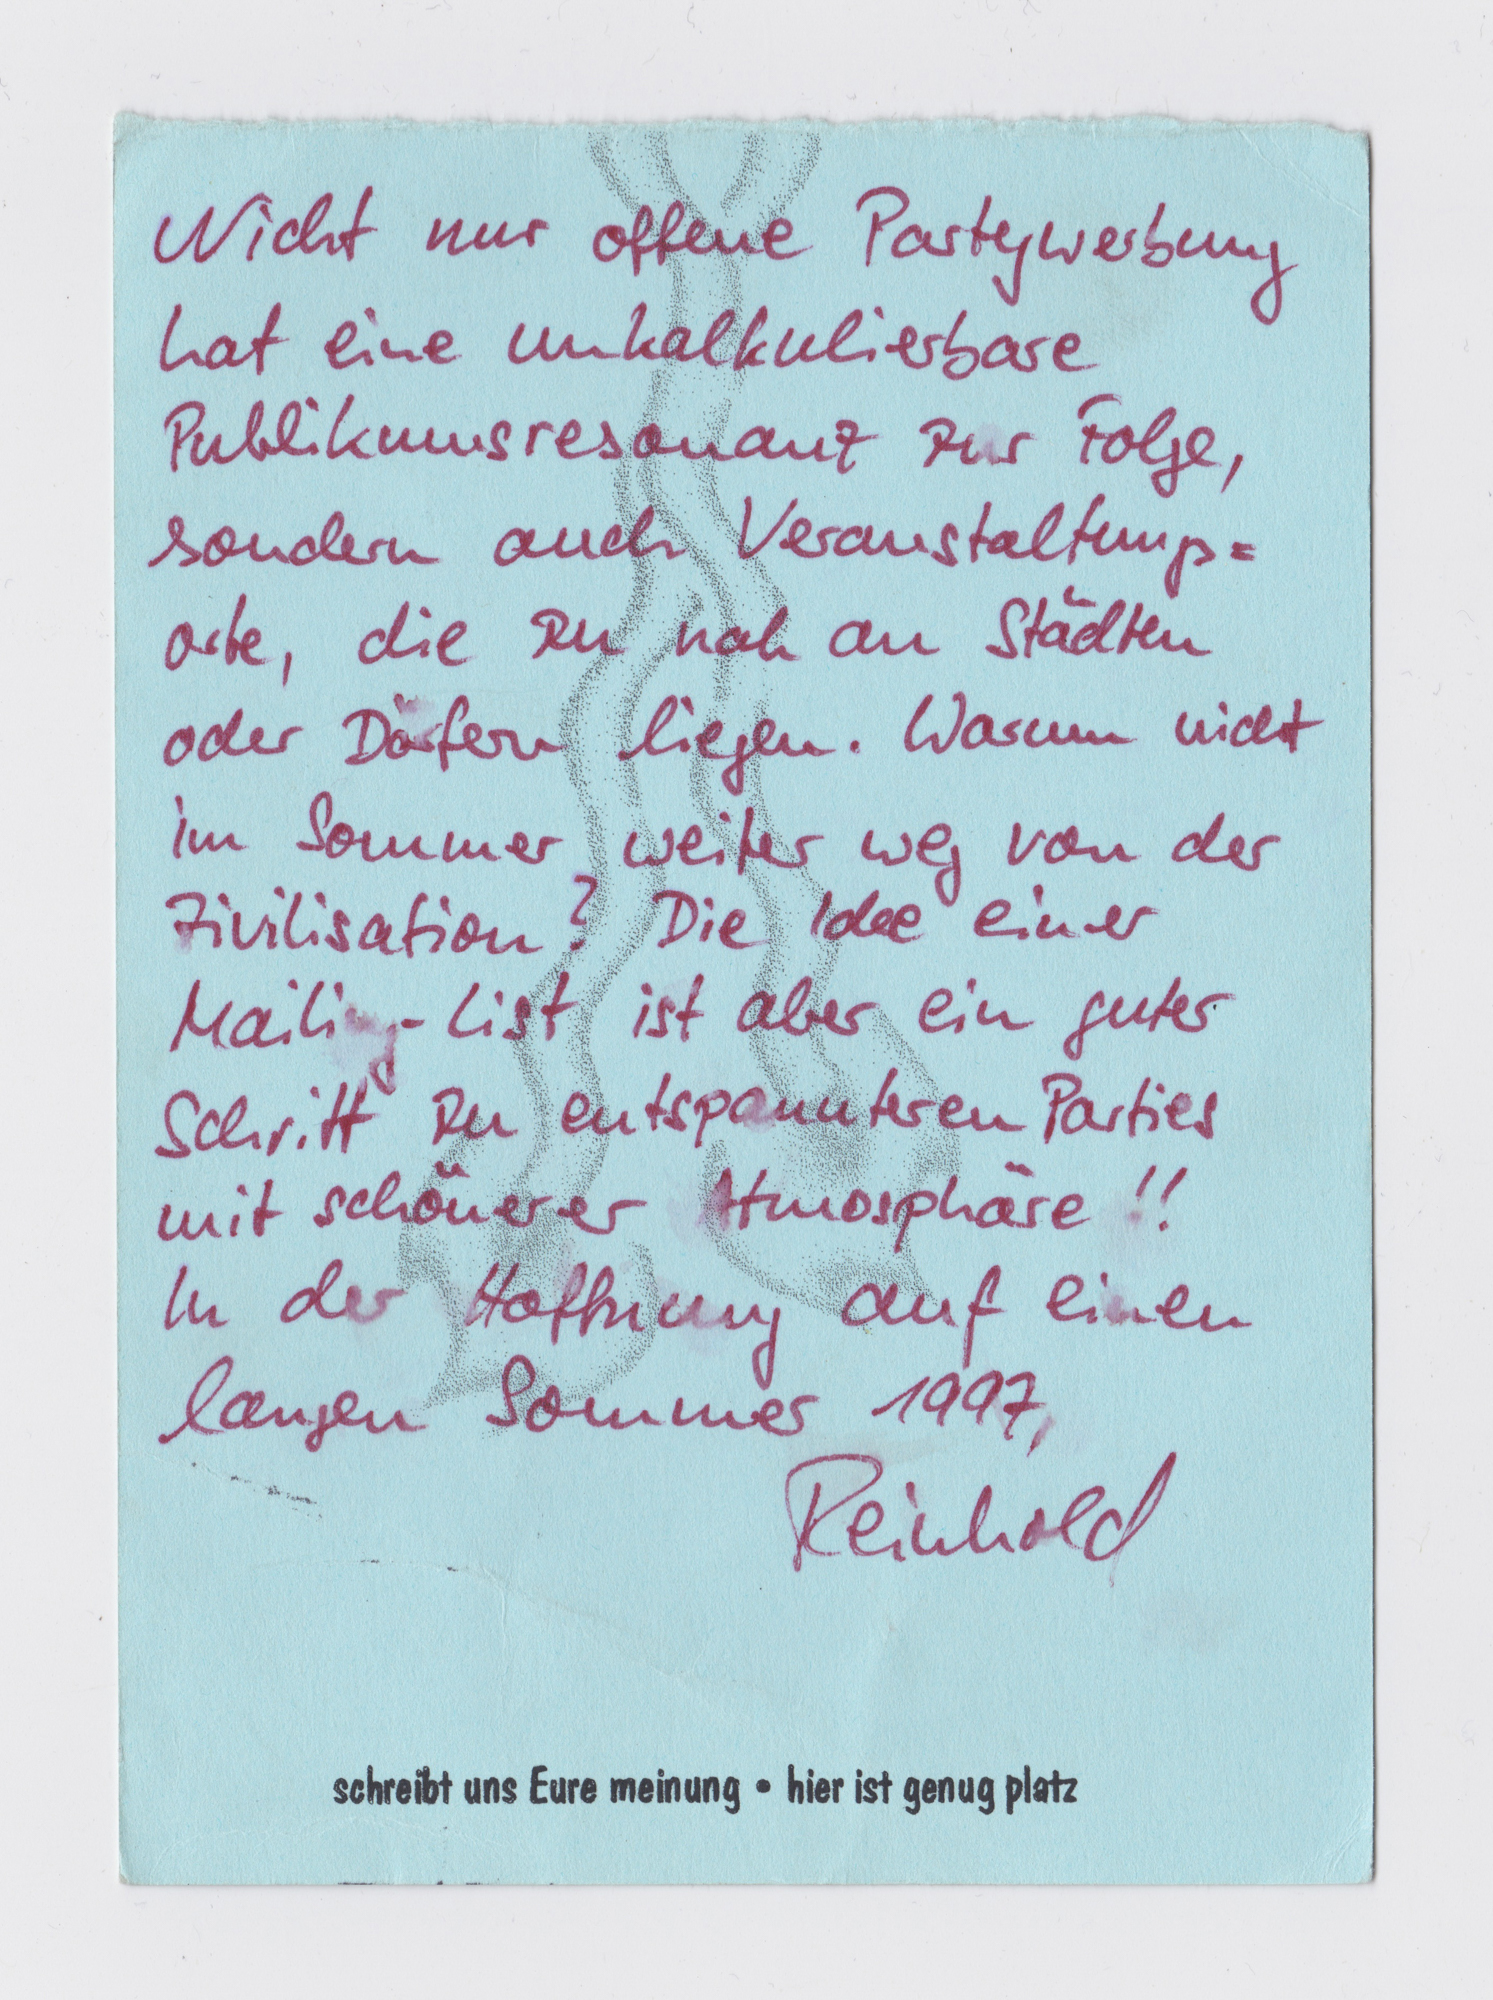 Nicht nur offene Partywerbung
hat eine unkalkulierbare
Publikumsresonanz zur Folge,
sondern auch Veranstaltungs=
orte, die zu nah an Städten
oder Dörfern liegen. Warum nicht
im Sommer weiter weg von der
Zivilisation? Die Idee einer
Mailing-List ist aber ein guter
Schritt zu entspannteren Parties
mit schönerer Atmosphäre!!
In der Hoffnung auf einen
langen Sommer 1997,
Reinhold
schreibt uns Eure meinung • hier ist genug platz